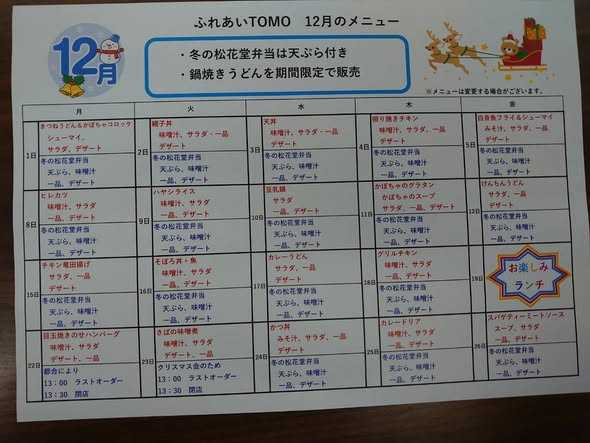 ふれあいTOMO 12月のメニュー
12月
・冬の松花堂弁当は天ぷら付き
・鍋焼きうどんを期間限定で販売
※メニューは変更する場合がございます。
月 火 水 木 金
1日
きつねうどん&かぼちゃコロッケ
シューマイ、
サラダ、デザート
冬の松花堂弁当
天ぷら、味噌汁
一品、デザート
2日
親子丼
味噌汁、サラダ・一品
デザート
冬の松花堂弁当
天ぷら、味噌汁
一品、デザート
3日
天丼
味噌汁、サラダ・一品
デザート
冬の松花堂弁当
天ぷら、味噌汁
一品、デザート
4日
照り焼きチキン
味噌汁、サラダ・一品
デザート
冬の松花堂弁当
天ぷら、味噌汁
一品、デザート
5日
白身魚フライ&シューマイ
みそ汁、サラダ・一品
デザート
冬の松花堂弁当
天ぷら、味噌汁
一品、デザート
8日
ヒレカツ
味噌汁、サラダ・一品
デザート
冬の松花堂弁当
天ぷら、味噌汁
一品、デザート
9日
ハヤシライス
サラダ・一品
デザート
冬の松花堂弁当
天ぷら、味噌汁
一品、デザート
10日
豆乳鍋
サラダ
デザート
冬の松花堂弁当
天ぷら、味噌汁
一品、デザート
11日
かぼちゃのグラタン
かぼちゃのスープ
サラダ、一品、デザート
冬の松花堂弁当
天ぷら、味噌汁
一品、デザート
12日
けんちんうどん
サラダ・一品
デザート
冬の松花堂弁当
天ぷら、味噌汁
一品、デザート
15日
チキン竜田揚げ
味噌汁、サラダ・一品
デザート
冬の松花堂弁当
天ぷら、味噌汁
一品、デザート
16日
そぼろ丼+魚
味噌汁、サラダ
デザート
冬の松花堂弁当
天ぷら、味噌汁
一品、デザート
17日
カレーうどん
サラダ・一品
デザート
冬の松花堂弁当
天ぷら、味噌汁
一品、デザート
18日
グリルチキン
味噌汁、サラダ・一品
デザート
冬の松花堂弁当
天ぷら、味噌汁
一品、デザート
19日
お楽しみ
ランチ
22日
目玉焼きのせハンバーグ
味噌汁、サラダ
デザート、一品
都合により
13:00 ラストオーダー
13:30 閉店
23日
さばの味噌煮
味噌汁、サラダ・一品
デザート
クリスマス会のため
13:00 ラストオーダー
13:30 閉店
24日
かつ丼
みそ汁、サラダ・一品
デザート
冬の松花堂弁当
天ぷら、味噌汁
一品、デザート
25日
カレードリア
味噌汁、サラダ・一品
デザート
冬の松花堂弁当
天ぷら、味噌汁
一品、デザート
26日
スパゲティーミートソース
スープ、サラダ
一品、デザート
冬の松花堂弁当
天ぷら、味噌汁
一品、デザート